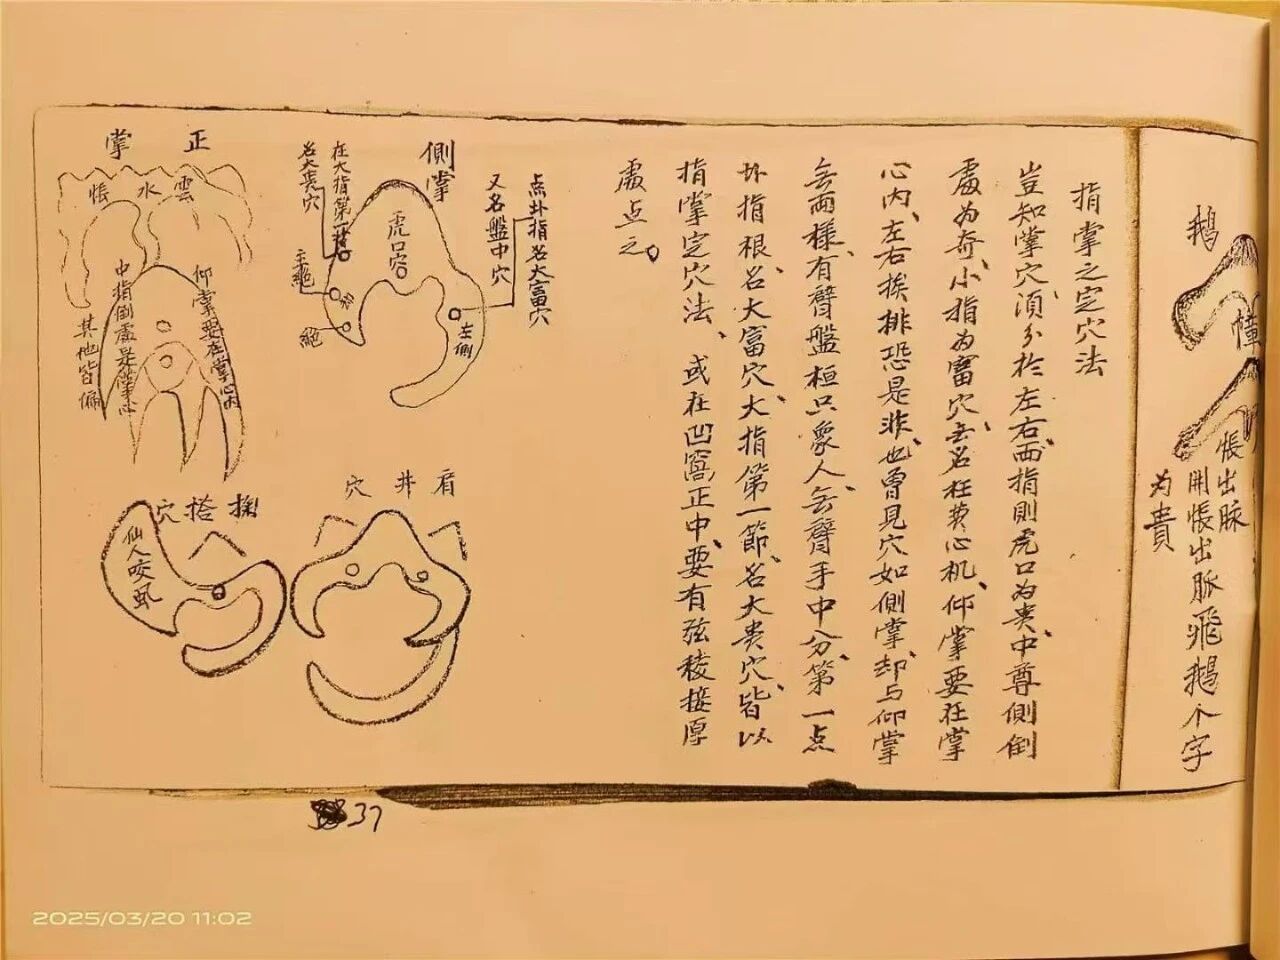 鵝
幛
帳出脈
開帳出脈飛鵝个字
为貴
指掌之定穴法
豈知掌穴湏分於左右、两指則虎口为贵、中尊側倒
處为奇、小指为富穴、无名枉费心机、仰掌要在掌
心内、左右挨排恐是非、也曾見穴如側掌、却与仰掌
无两樣、有臂盤桓只象人、无臂手中分、第一点
卦指根、名大富穴、大指第一節、名大贵穴、皆以
指掌定穴法、或在凹窩正中、要有弦稜接厚
處点之。
点卦指名大富穴
又名盤中穴
側掌
虎口穴
左側
在大指第一節
名大贵穴
主絕
絕
正掌
雲水帳
仰掌要在掌心内
中指倒處是掌心
其他皆偏
肩井穴
搭穴
仙人咬虱
37
2025/03/20 11:02